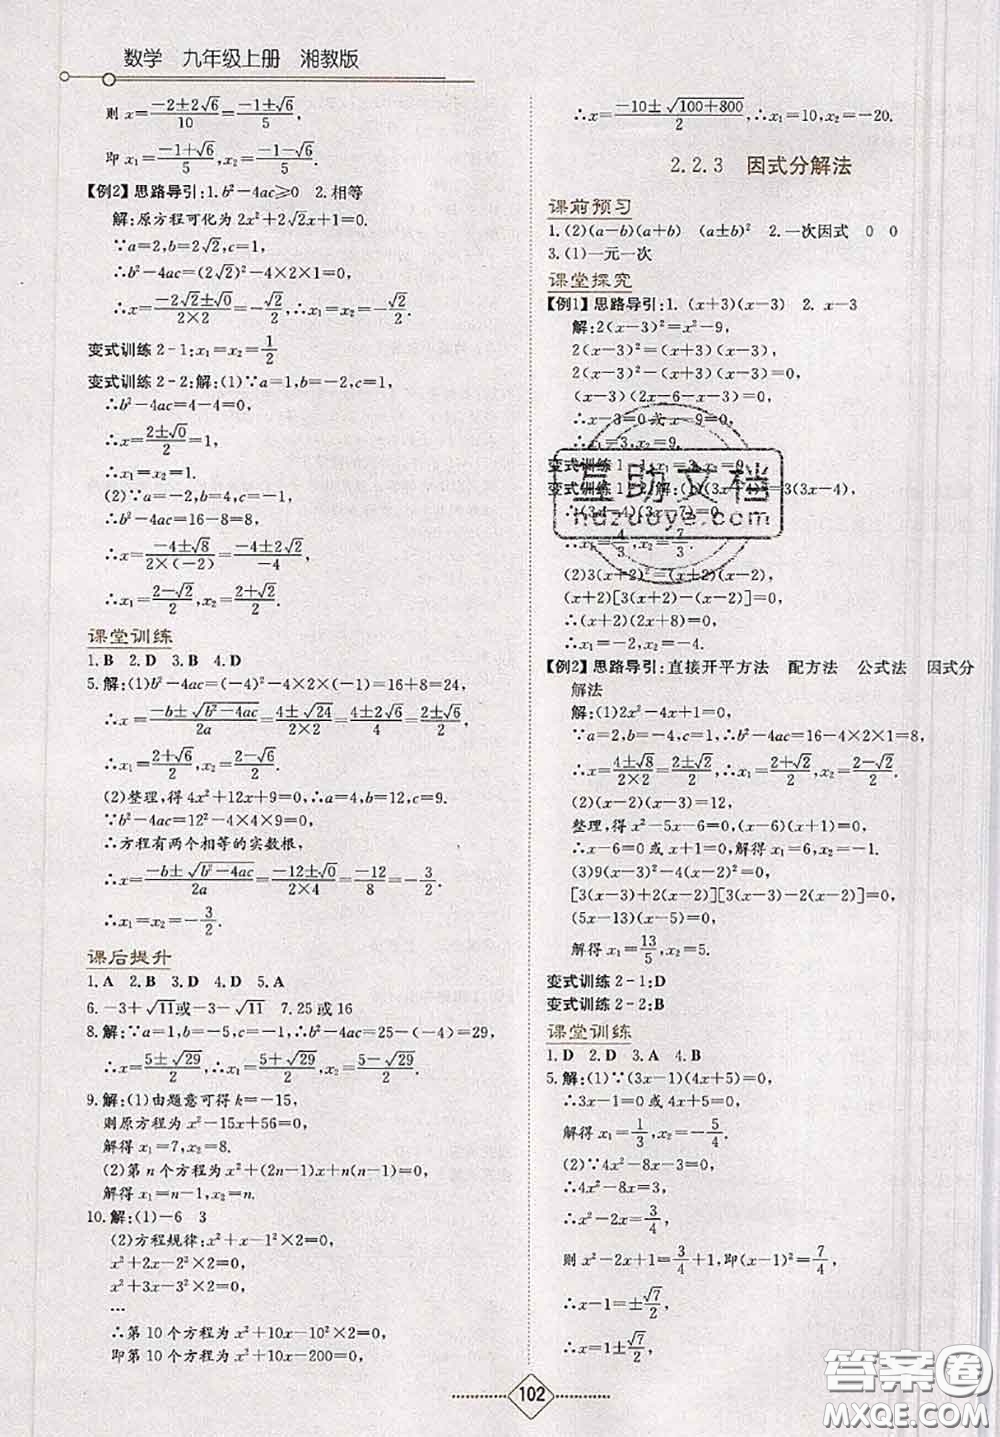 数学 九年级上册 湘教版
则 x=(-2±2√6)/10=(-1±√6)/5,
即 x₁=(-1+√6)/5, x₂=(-1-√6)/5.
【例2】思路导引:1. b²-4ac≥0 2. 相等
解:原方程可化为 2x²+2√2x+1=0,
∵a=2,b=2√2,c=1,
∴b²-4ac=(2√2)²-4×2×1=0,
∴x=(-2√2±√0)/(2×2)=-√2/2,∴x₁=x₂=-√2/2.
变式训练 2-1:x₁=x₂=1/2
变式训练 2-2:解:(1)∵a=1,b=-2,c=1,
∴b²-4ac=4-4=0,
∴x=(2±√0)/2=1,
∴x₁=x₂=1.
(2)∵a=-2,b=4,c=-1,
∴b²-4ac=16-8=8,
∴x=(-4±√8)/(2×(-2))=(-4±2√2)/(-4),
∴x₁=(2-√2)/2, x₂=(2+√2)/2.
课堂训练
1. B 2. D 3. B 4. D
5. 解:(1)b²-4ac=(-4)²-4×2×(-1)=16+8=24,
∴x=(-b±√(b²-4ac))/2a=(4±√24)/(2×2)=(4±2√6)/4=(2±√6)/2,
∴x₁=(2+√6)/2, x₂=(2-√6)/2.
(2)整理,得 4x²+12x+9=0,∴a=4,b=12,c=9.
∵b²-4ac=12²-4×4×9=0,
∴方程有两个相等的实数根,
∴x=(-b±√(b²-4ac))/2a=(-12±√0)/(2×4)=-12/8=-3/2,
∴x₁=x₂=-3/2.
课后提升
1. A 2. B 3. D 4. D 5. A
6. -3+√11或-3-√11 7. 25 或 16
8. 解:∵a=1,b=-5,c=-1,∴b²-4ac=25-(-4)=29,
∴x=(5±√29)/2,∴x₁=(5+√29)/2, x₂=(5-√29)/2.
9. 解:(1)由题意可得 k=-15,
则原方程为 x²-15x+56=0,
解得 x₁=7,x₂=8.
(2)第 n 个方程为 x²+(2n-1)x+n(n-1)=0,
解得 x₁=n-1,x₂=n.
10. 解:(1)-6 3
(2)方程规律:x²+x-1²×2=0,
x²+2x-2²×2=0,
x²+3x-3²×2=0,
…
∴第 10 个方程为 x²+10x-10²×2=0,
即第 10 个方程为 x²+10x-200=0,
∴x=(-10±√(100+800))/2,∴x₁=10,x₂=-20.
2.2.3 因式分解法
课前预习
1. (2)(a-b)(a+b) (a±b)² 2. 一次因式 0 0
3. (1)一元一次
课堂探究
【例1】思路导引:1. (x+3)(x-3) 2. x-3
解:2(x-3)²=x²-9,
2(x-3)²=(x+3)(x-3),
2(x-3)²-(x+3)(x-3)=0,
(x-3)(2x-6-x-3)=0,
∴x-3=0 或 x-9=0,
∴x₁=3,x₂=9.
变式训练 1-1:x₁=3,x₂=9
变式训练 1-2:解:(1)(3x-4)²=3(3x-4),
∴(3x-4)(3x-7)=0,
∴x₁=4/3, x₂=7/3.
(2)3(x+2)²=(x+2)(x-2),
(x+2)[3(x+2)-(x-2)]=0,
∴(x+2)(2x+8)=0,
∴x₁=-2,x₂=-4.
【例2】思路导引:直接开平方法 配方法 公式法 因式分
解法
解:(1)2x²-4x+1=0,
∵a=2,b=-4,c=1,∴b²-4ac=16-4×2×1=8,
∴x=(4±√8)/(2×2)=(2±√2)/2,∴x₁=(2+√2)/2, x₂=(2-√2)/2.
(2)(x-2)(x-3)=12,
整理,得 x²-5x-6=0,(x-6)(x+1)=0,
∴x-6=0 或 x+1=0,解得 x₁=6,x₂=-1.
(3)9(x-3)²-4(x-2)²=0,
[3(x-3)+2(x-2)][3(x-3)-2(x-2)]=0,
(5x-13)(x-5)=0,
解得 x₁=13/5, x₂=5.
变式训练 2-1:D
变式训练 2-2:B
课堂训练
1. D 2. D 3. A 4. B
5. 解:(1)∵(3x-1)(4x+5)=0,
∴3x-1=0 或 4x+5=0,
解得 x₁=1/3, x₂=-5/4.
(2)∵4x²-8x-3=0,
∴4x²-8x=3,
∴x²-2x=3/4,
则 x²-2x+1=3/4+1,即(x-1)²=7/4,
∴x-1=±√7/2,
∴x=1±√7/2,
102
互助文档
hdzuoye.com
答案圈
MXQE.COM